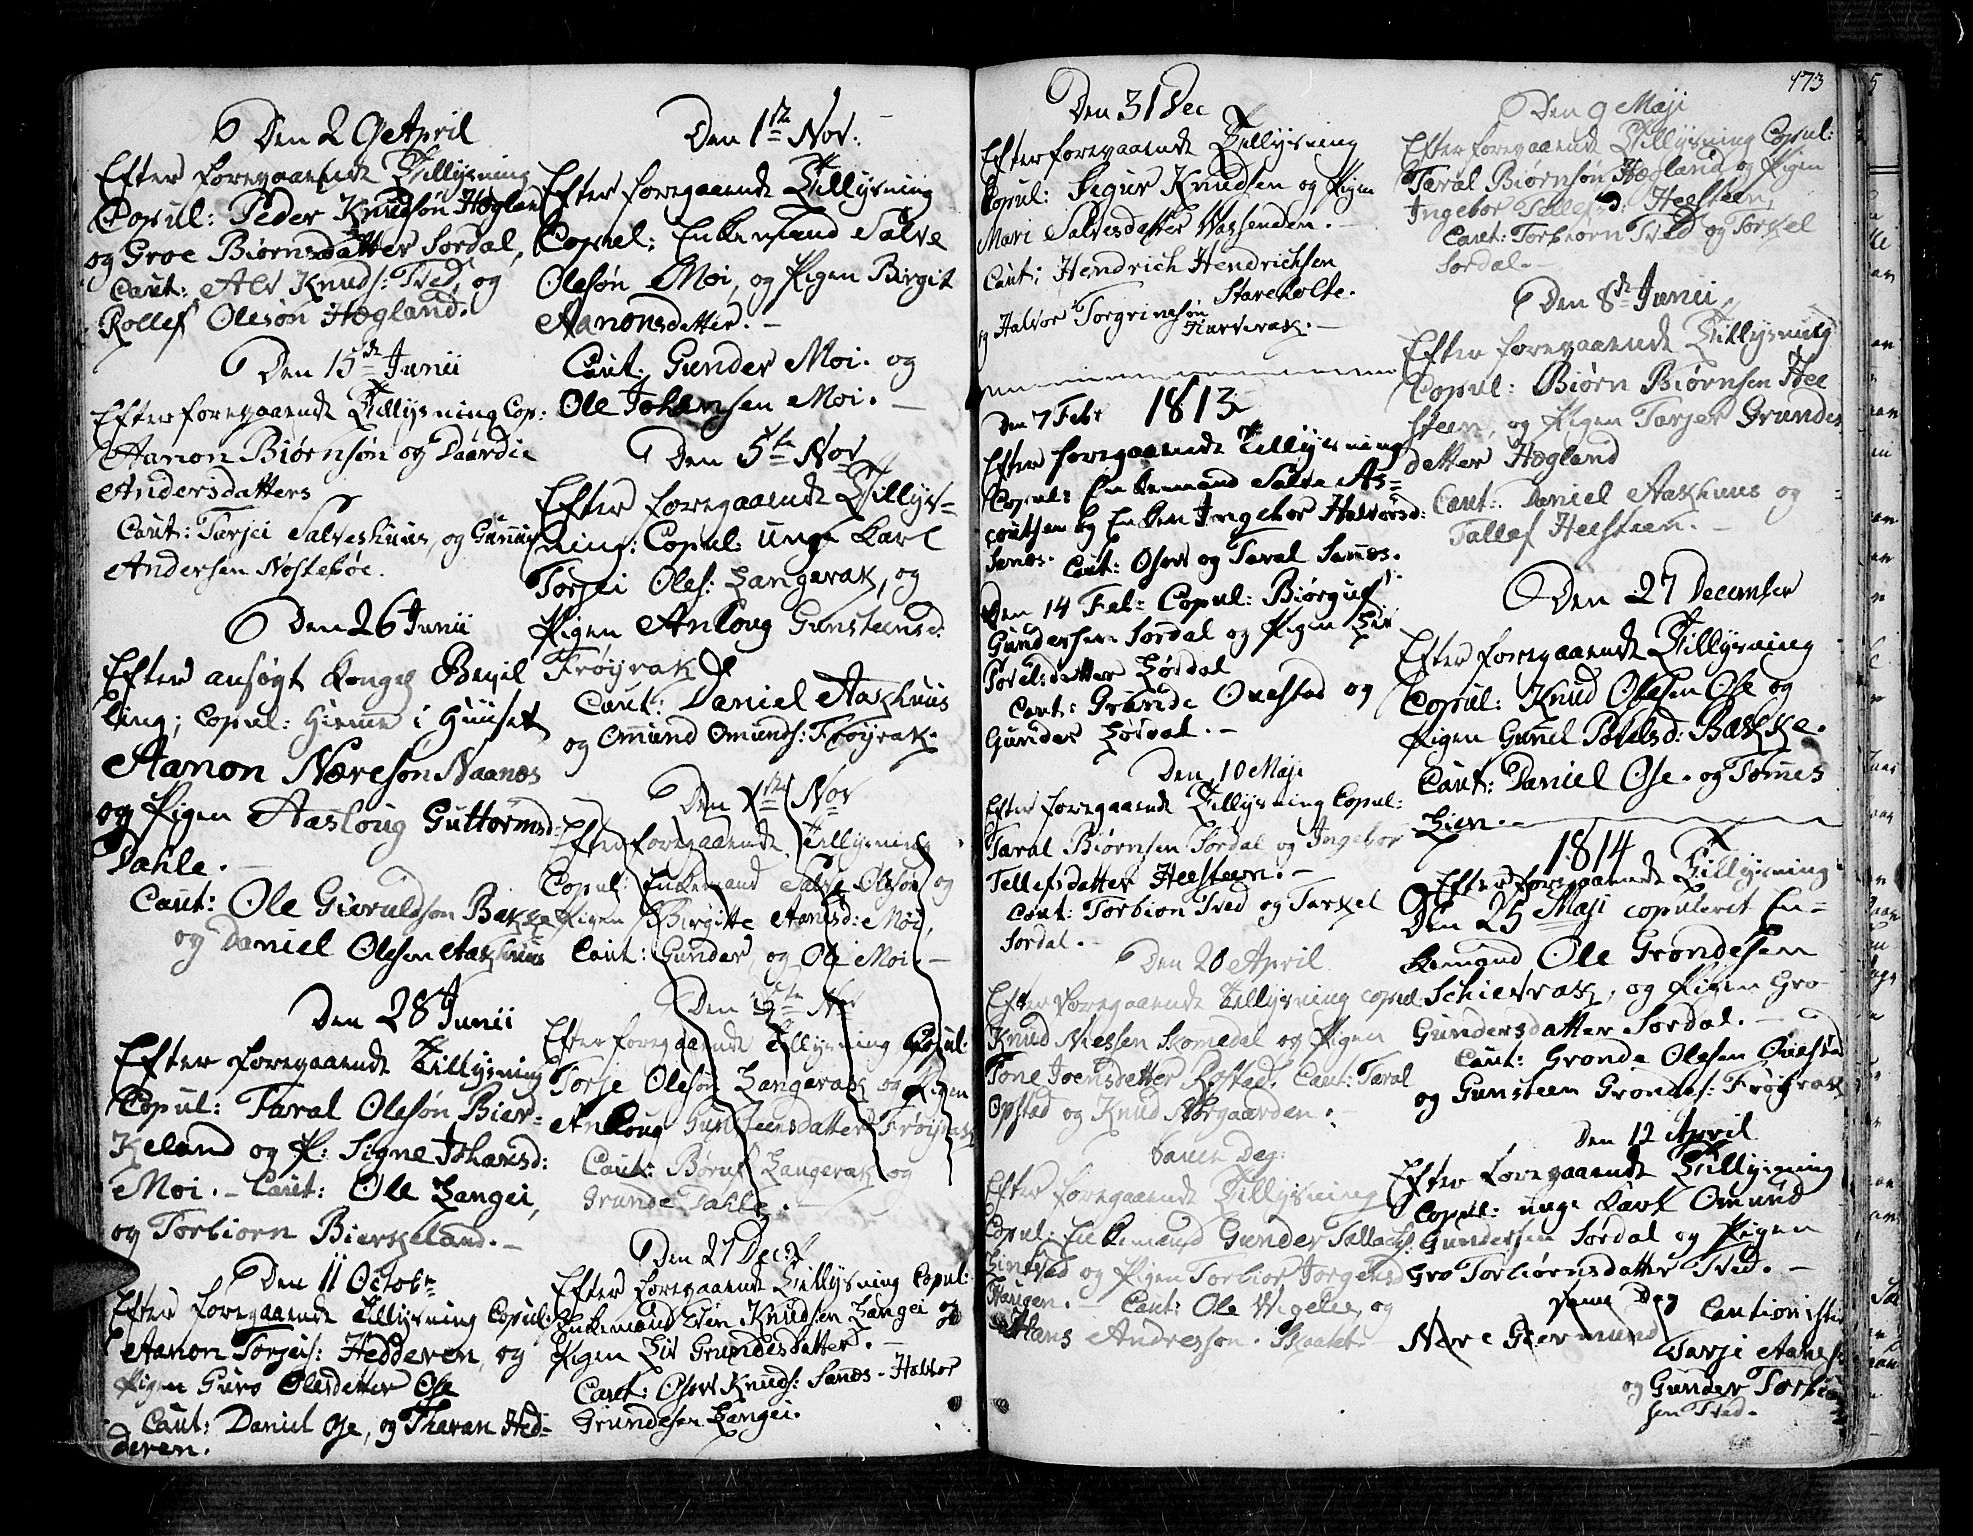 Den 29 April
Efter foregaaende Tillysning
Copul: Peder Knudsøn Hægland
og Groe Biørnsdatter Sordal,
Caut: Alv Knuds: Tved, og
Rollef Olesøn Hægland.
Den 15de Junii
Efter foregaaende Tillysning Cop:
Aanon Biørnsøn og Daardie
Andersdatters
Caut: Tarjei Salveshuus, og Gunnuf
Andersen Nøstebøe.
Den 26 Junii
Efter ansøgt Konges Bevil
ling; Copul: hieme i Huuset
Aanon Næresøn Naanes
og Pigen Aasloug Guttormsd:
Dahle.
Caut: Ole Giøruldsøn Bakke
og Daniel Olesen Aakhuus
Den 28 Junii
Efter foregaaende Tillysning
Copul: Taral Olesøn Bier-
keland og P: Signe Johansd:
Moi. - Caut: Ole Langei,
og Torbiorn Bierkeland.
Den 11 Octobr
Efter foregaaende Tillysning Copul:
Aanon Torjeis: Hedderen, og
Pigen Guro Olesdatter Ose
Caut: Daniel Ose, og Tharan Hed-
deren.
Den 1te Nov:
Efter foregaaende Tillysning
Copul: Enkemand Salve
Olesøn Moi, og Pigen Birgit
Aanonsdatter.
Caut: Gunder Moi. og
Ole Johansen Moi.
Den 5te Nov
Efter foregaaende Tillys-
ning: Copul: unge Karl
Torjei Oles: Langerak, og
Pigen Anloug Gunsteensd:
Frøyrak
Caut: Daniel Aakhuus
og Omund Omunds: Frøyrak.
Den 1te Nov
Efter foregaaende Tillysning
Copul: Enkemand Salve Olesøn og
Pigen Birgitte Aanesd: Moi,
Caut: Gunder, og Ole Moi.
Den 5te Nov
Efter foregaaende Tillysning Copul:
Torje Olesøn Langerak og Pigen
Anloug Gunsteensdatter Frøyrak
Caut: Børuf Langerak og
Grunde Dahle.
Den 27 Dec:
Efter foregaaende Tillysning Copul:
Enkemand Even Knudsen Langei og
Pigen Liv Grundesdatter.
Caut: Osuv Knuds: Sanæs - Halvor
Grundesen Langei.
Den 31 Dec
Efter foregaaende Tillysning
Copul: Segur Knudsen og Pigen
Mari Salvesdatter Vassenden.
Caut: Hendrich Hendrichsen
Stareholte.
og Halvor Torgrimsøn
Kurverak.
1813
Den 7 Febr
Efter foregaaende Tillysning
Copul: Enkemand Salve As-
coutsen og Enken Ingebor Halvorsd:
Sanæs. Caut: Osuv og Taral Sanæs.
Den 14 Feb: Copul: Biørguf
Gundersen Sordal og Pigen Liv
Povelsdatter Lørdal
Caut: Grunde Ouestad og
Gunder Lørdal.
Den 10 Maji
Efter foregaaende Tillysning Copul:
Taral Biørnsen Sordal og Ingebor
Tellefsdatter Heesteen.
Caut: Torbion Tved og Tarkel
Sordal.
Den 20 April
Efter foregaaende Tillysning copul
Knud Nielsen Skomedal og Pigen
Tone Joensdatter Rosted. Caut: Taral
Opstad og Knud Norgaarden.
Samen Dag:
Efter foregaaende Tillysning
Copul: Enkemand Gunder Tallachs:
og Pigen Torbior Jorgensd
Haugen. - Caut: Ole Vigelie, og
Hans Andresson. Skaalet
173
Den 9 Maji
Efter foregaaende Tillysning Copul:
Taral Biørnsøn Hægland og Pigen
Ingebor Tellefsd. Heesteen,
Caut: Torbiorn Tved og Torkel
Sordal.
Den 8de Junii
Efter foregaaende Tillysning
Copul: Biørn Biørnsen Hee
steen, og Pigen Tarjer Grundes
datter Hægland
Caut: Daniel Aakhuus og
Tallef Heesteen.
Den 27 December
Efter foregaaende Tillysning
Copul: Knud Olesen Ose og
Pigen Gunel Povelsd: Bakke.
Caut: Daniel Ose. og Tomes
Lien.
1814
Efter foregaaende Tillysning
Den 25 Maji copuleret En-
kemand Ole Grondesen
Schievrak, og Pigen Gro
Gundersdatter Sordal.
Caut: Gronde Olesen Ouestad
og Gunsteen Grondes: Frøyrak
Den 12 April
Efter foregaaende Tillysning
Copul: unge Karl Omund
Gundersen Sordal og Pigen
Gro Torbiørnsdatter Tved.
Samme Dag
Cautionister
Nere Giermund
Tarje Aanes
og Gunder Torbiøn
sen Tved.